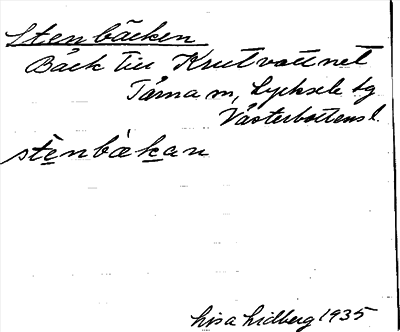 Stenbäcken
Bäck till Krutvattnet
Tärna sn, Lycksele lg
Västerbottens l.
stenbäkan
Lisa Lidberg 1935